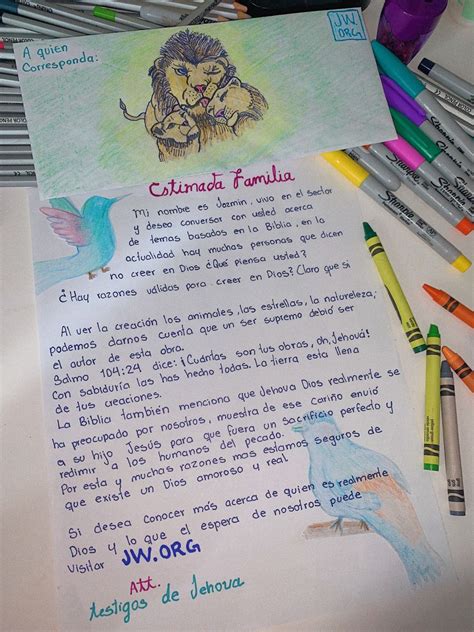 A quien
Corresponda:
JW.
ORG
Estimada Familia
Mi nombre es Jazmin, vivo en el sector
y deseo conversar con usted acerca
de temas basados en la Biblia, en la
actualidad hay muchas personas que dicen
no creer en Dios ¿Qué piensa usted?
¿Hay razones válidas para creer en Dios? Claro que si
Al ver la creación los animales, las estrellas, la naturaleza;
podemos darnos cuenta que un ser supremo debió ser
el autor de esta obra.
Salmo 104:24 dice: ¡Cuántas son tus obras, oh, Jehová!
Con sabiduría las has hecho todas. La tierra esta llena
de tus creaciones.
La Biblia también menciona que Jehova Dios realmente se
ha preocupado por nosotros, muestra de ese cariño envió
a su hijo Jesús para que fuera un sacrificio perfecto y
redimir a los humanos del pecado.
Por esta y muchas razones mas estamos seguros de
que existe un Dios amoroso y real
Si desea conocer más acerca de quien es realmente
Dios y lo que el espera de nosotros puede
visitar JW.ORG
Att.
testigos de Jehova
Sharpie
Sharpie
Sharpie
Sharpie